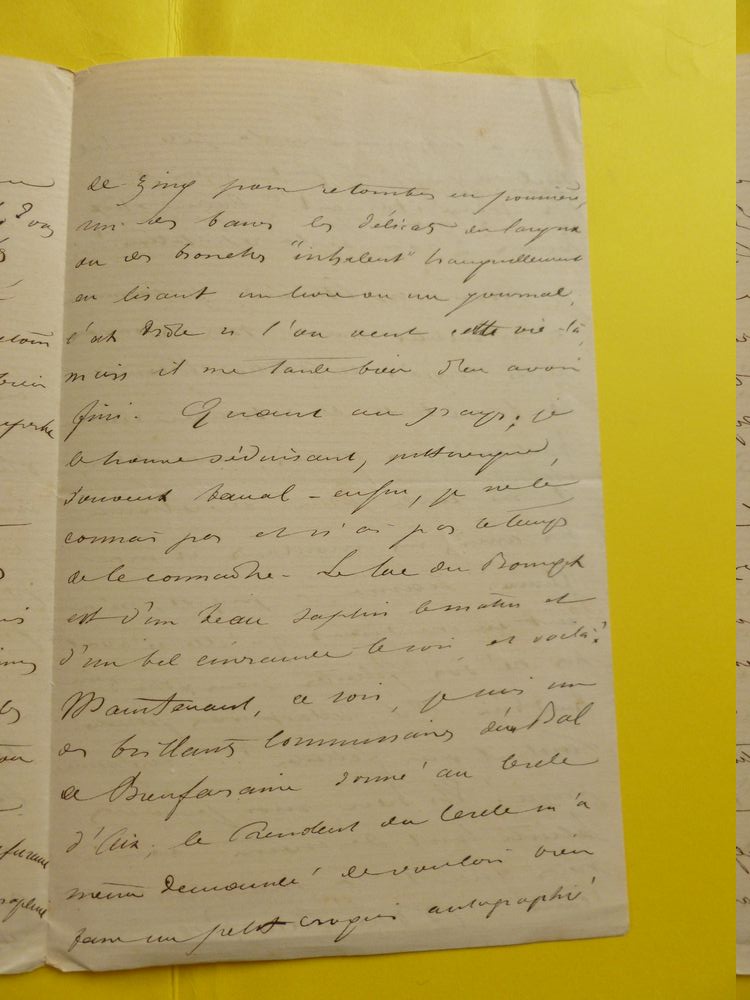 de zinc pour retomber en poussière,
sur les bancs les délicats du larynx
ou des bronches "inhalent" tranquillement
en lisant un livre ou un journal.
c'est drôle si l'on veut cette vie-là
mais il me tarde bien d'en avoir
fini. Quant au pays, je
le trouve séduisant, pittoresque,
souvent banal - enfin, je ne le
connais pas et n'ai pas le temps
de le connaître - Le lac du Bourget
est d'un beau saphir le matin et
d'un bel émeraude le soir, et voilà!
Maintenant, ce soir, je suis un
des brillants commissaires du Bal
de Bienfaisance donné au Cercle
d'Aix, le Président du Cercle m'a
même demandé de vouloir bien
faire un petit croquis autographié